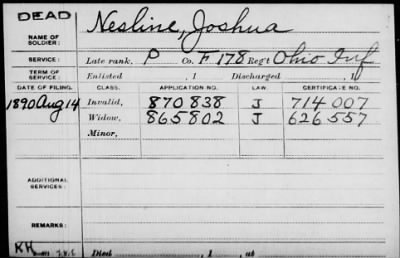 DEAD
NAME OF SOLDIER: Nesline, Joshua
SERVICE: Late rank, P Co. F 178 Reg't Ohio Inf
TERM OF SERVICE: Enlisted , 1 Discharged , 1
DATE OF FILING. CLASS. APPLICATION NO. LAW. CERTIFICATE NO.
1890 Aug 14 Invalid, 870 838 J 714 007
Widow, 865802 J 626 557
Minor,
ADDITIONAL SERVICES:
REMARKS:
KH
Died , 1 , at